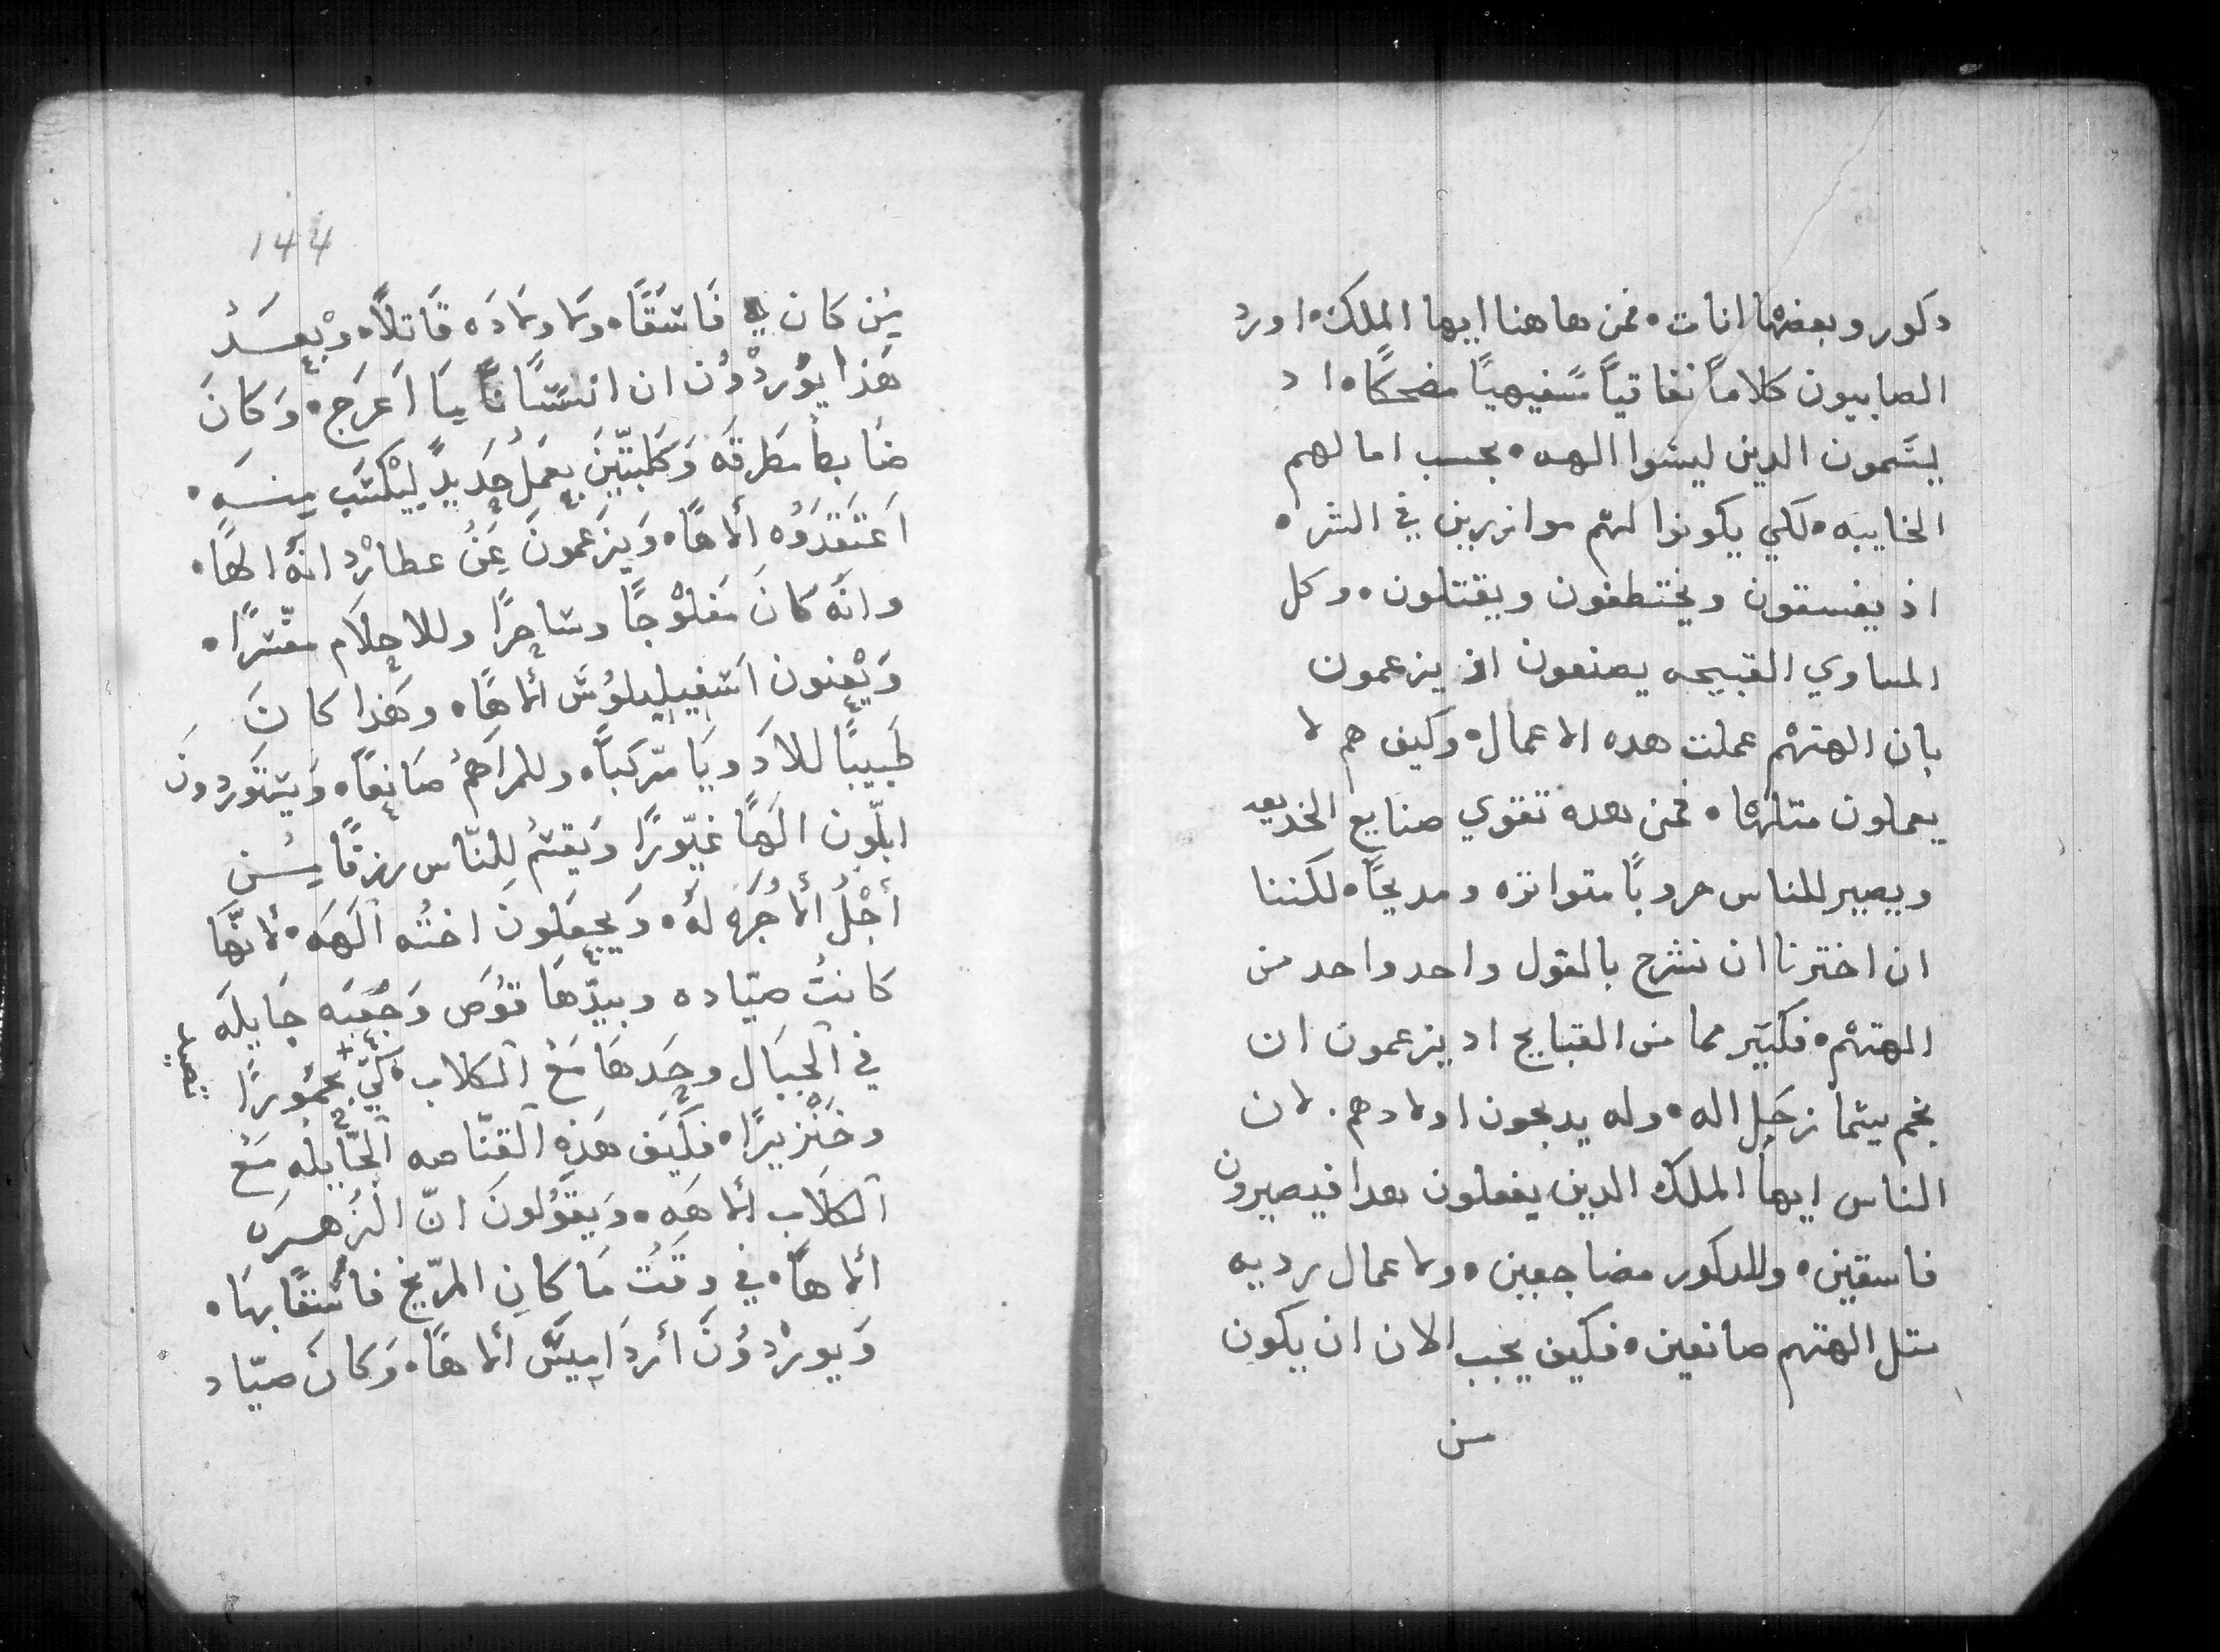 دكور وبعضها انات • فمن هاهنا ايها الملك • اورد
الصابيون كلاماً نفاقياً سفيهياً مضحكاً • اد
يسمون الدين ليسوا الهه • بحسب امالهم
الخايبه • لكي يكونوا لهم موازرين في الشر •
اذ يفسقون ويختطفون ويقتلون • وكل
المساوي القبيحه يصنعون اذ يزعمون
بان الهتهم عملت هده الاعمال • وكيف هم لا
يعملون متلها • فمن هده تقوي صنايع الخديعه
ويصير للناس حروباً متواتره ومديحاً • لكننا
ان اخترنا ان نشرح بالقول واحد واحد من
الهتهم • فكتير مما من القبايح اد يزعمون ان
نجم يسما زحل اله • وله يدبحون اولادهم . لان
الناس ايها الملك الدين يفعلون هدا فيصيرون
فاسقين • وللدكور مضاجعين • ولاعمال رديه
متل الهتهم صانعين • فكيف يجب الان ان يكون
من
144
مِن كَان فَاسَقًا • ولاولادَه قَاتلاً • وبْعَدْ
هَذا يوُردْوُن ان انسَانًا مَا اَعرَج • وَكَانَ
ضَابطاً مَطرقَه وَكَلبتّين بعَمَلُ حَديدٍ ليْكتَب مِنهَ •
اَعتَقدَوُه ألاهًا • وَيزَعمونَ عَنُ عطارْد انهَّ الهًا •
وانَّه كَانَ مَفلوْجًا وساحرًا وللاحلاَم مفسّرًا •
وَيْعنون اَسفيليلوُسَ ألاهًا • وهَذا كانَ
طَبيبًا للاَدويَا مترّكباً • وللمراَهمُ صَانِعاً • وَيتوَردونَ
ابلّون الَهًا غيّورًا وَيقسمُ للنّاس رزقًا مِن
أجْلُ ألأجُرَه لهُ • وَيجعَلونَ اختُه آلَهَه • لانهَّا
كَانتُ صيّاده وبيدّهَا قوُس وَجُعبَه جَايلَه
في آلجبَال وحَدهَا مَعُ آلكلاب • لكيّ يحمُورًا
تصيد
وخَنْزيرًا • فكَيف هَذه آلقنّاصه آلجّايله مَعُ
آلكلاَب ألاهَه • وَيقوُلونَ انّ الَزُهرَه
ألاهاً • في وقتُ مَا كانِ المرّيخ فاسُقًا بهَا •
وَيورْدوُنَ أردَامِيسَ ألاهًا • وَكانَ صيّاد